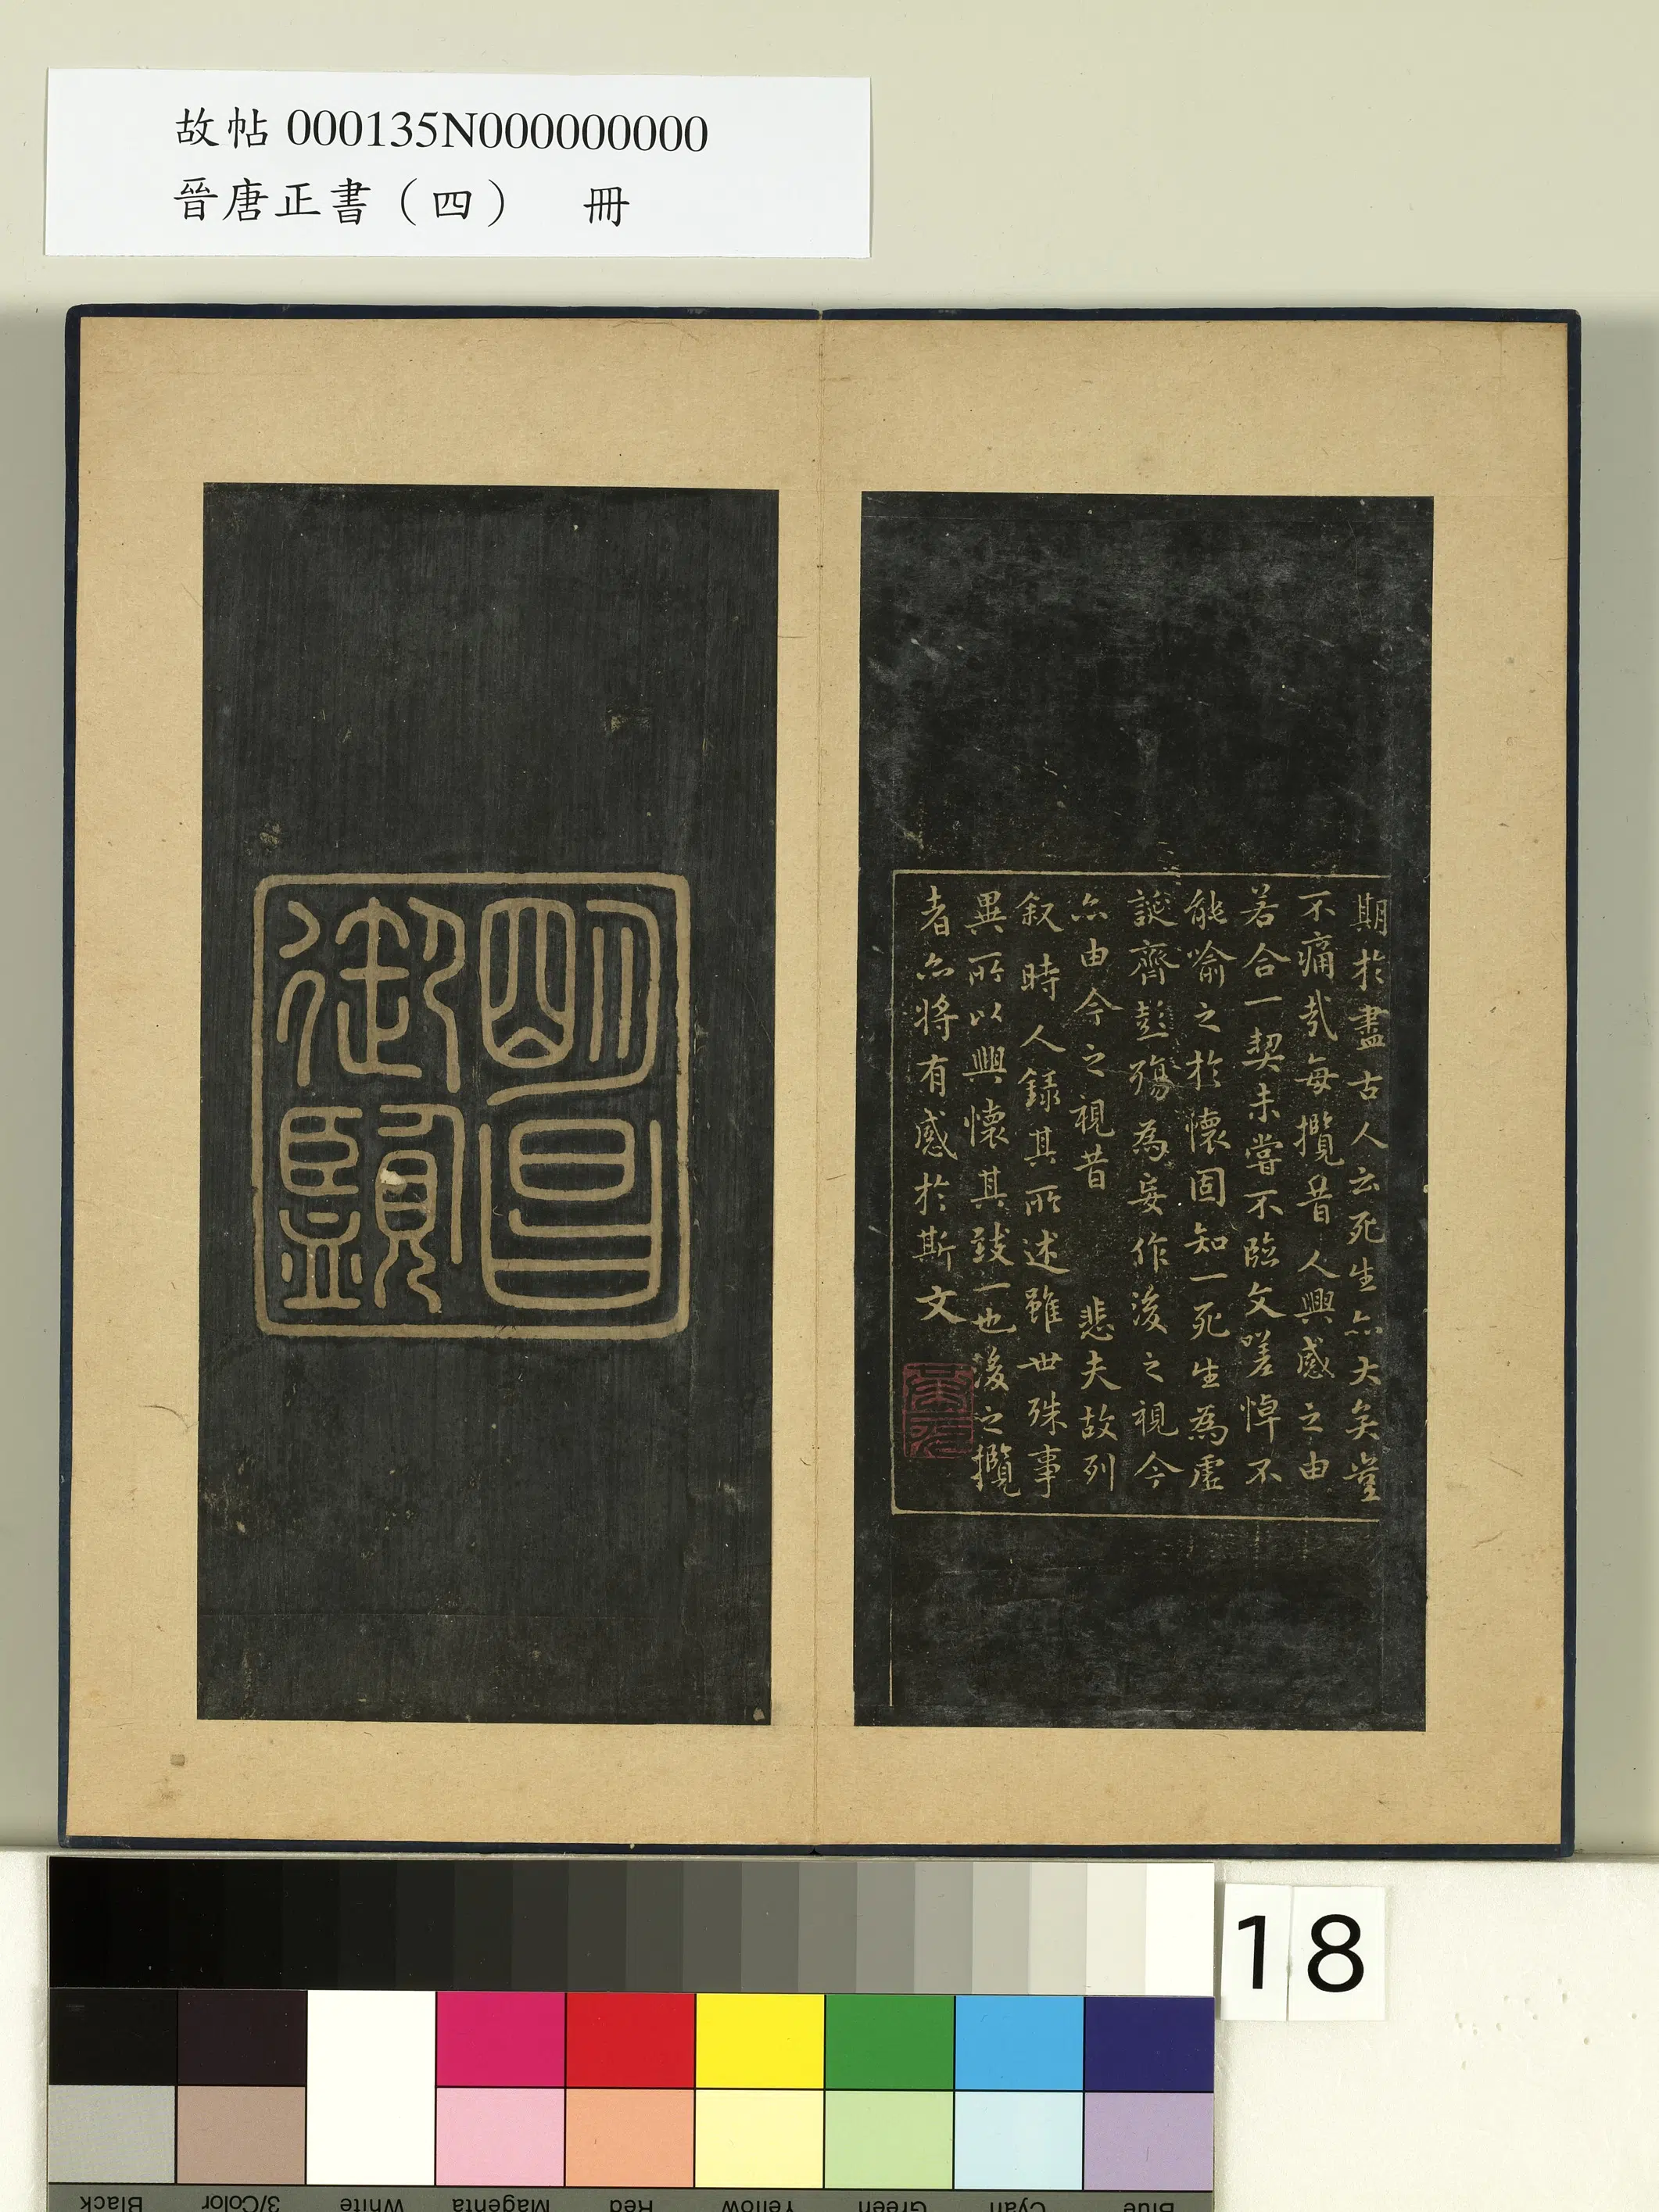 故帖 000135N000000000
晉唐正書（四） 冊
期於盡古人云死生亦大矣豈
不痛哉每攬昔人興感之由
若合一契未嘗不臨文嗟悼不
能喻之於懷固知一死生為虛
誕齊彭殤為妄作後之視今
亦由今之視昔 悲夫故列
叙時人錄其所述雖世殊事
異所以興懷其致一也後之攬
者亦將有感於斯文
明昌
御覽
18
Black
3/Color
White
Magenta
Red
Yellow
Green
Cyan
Blue